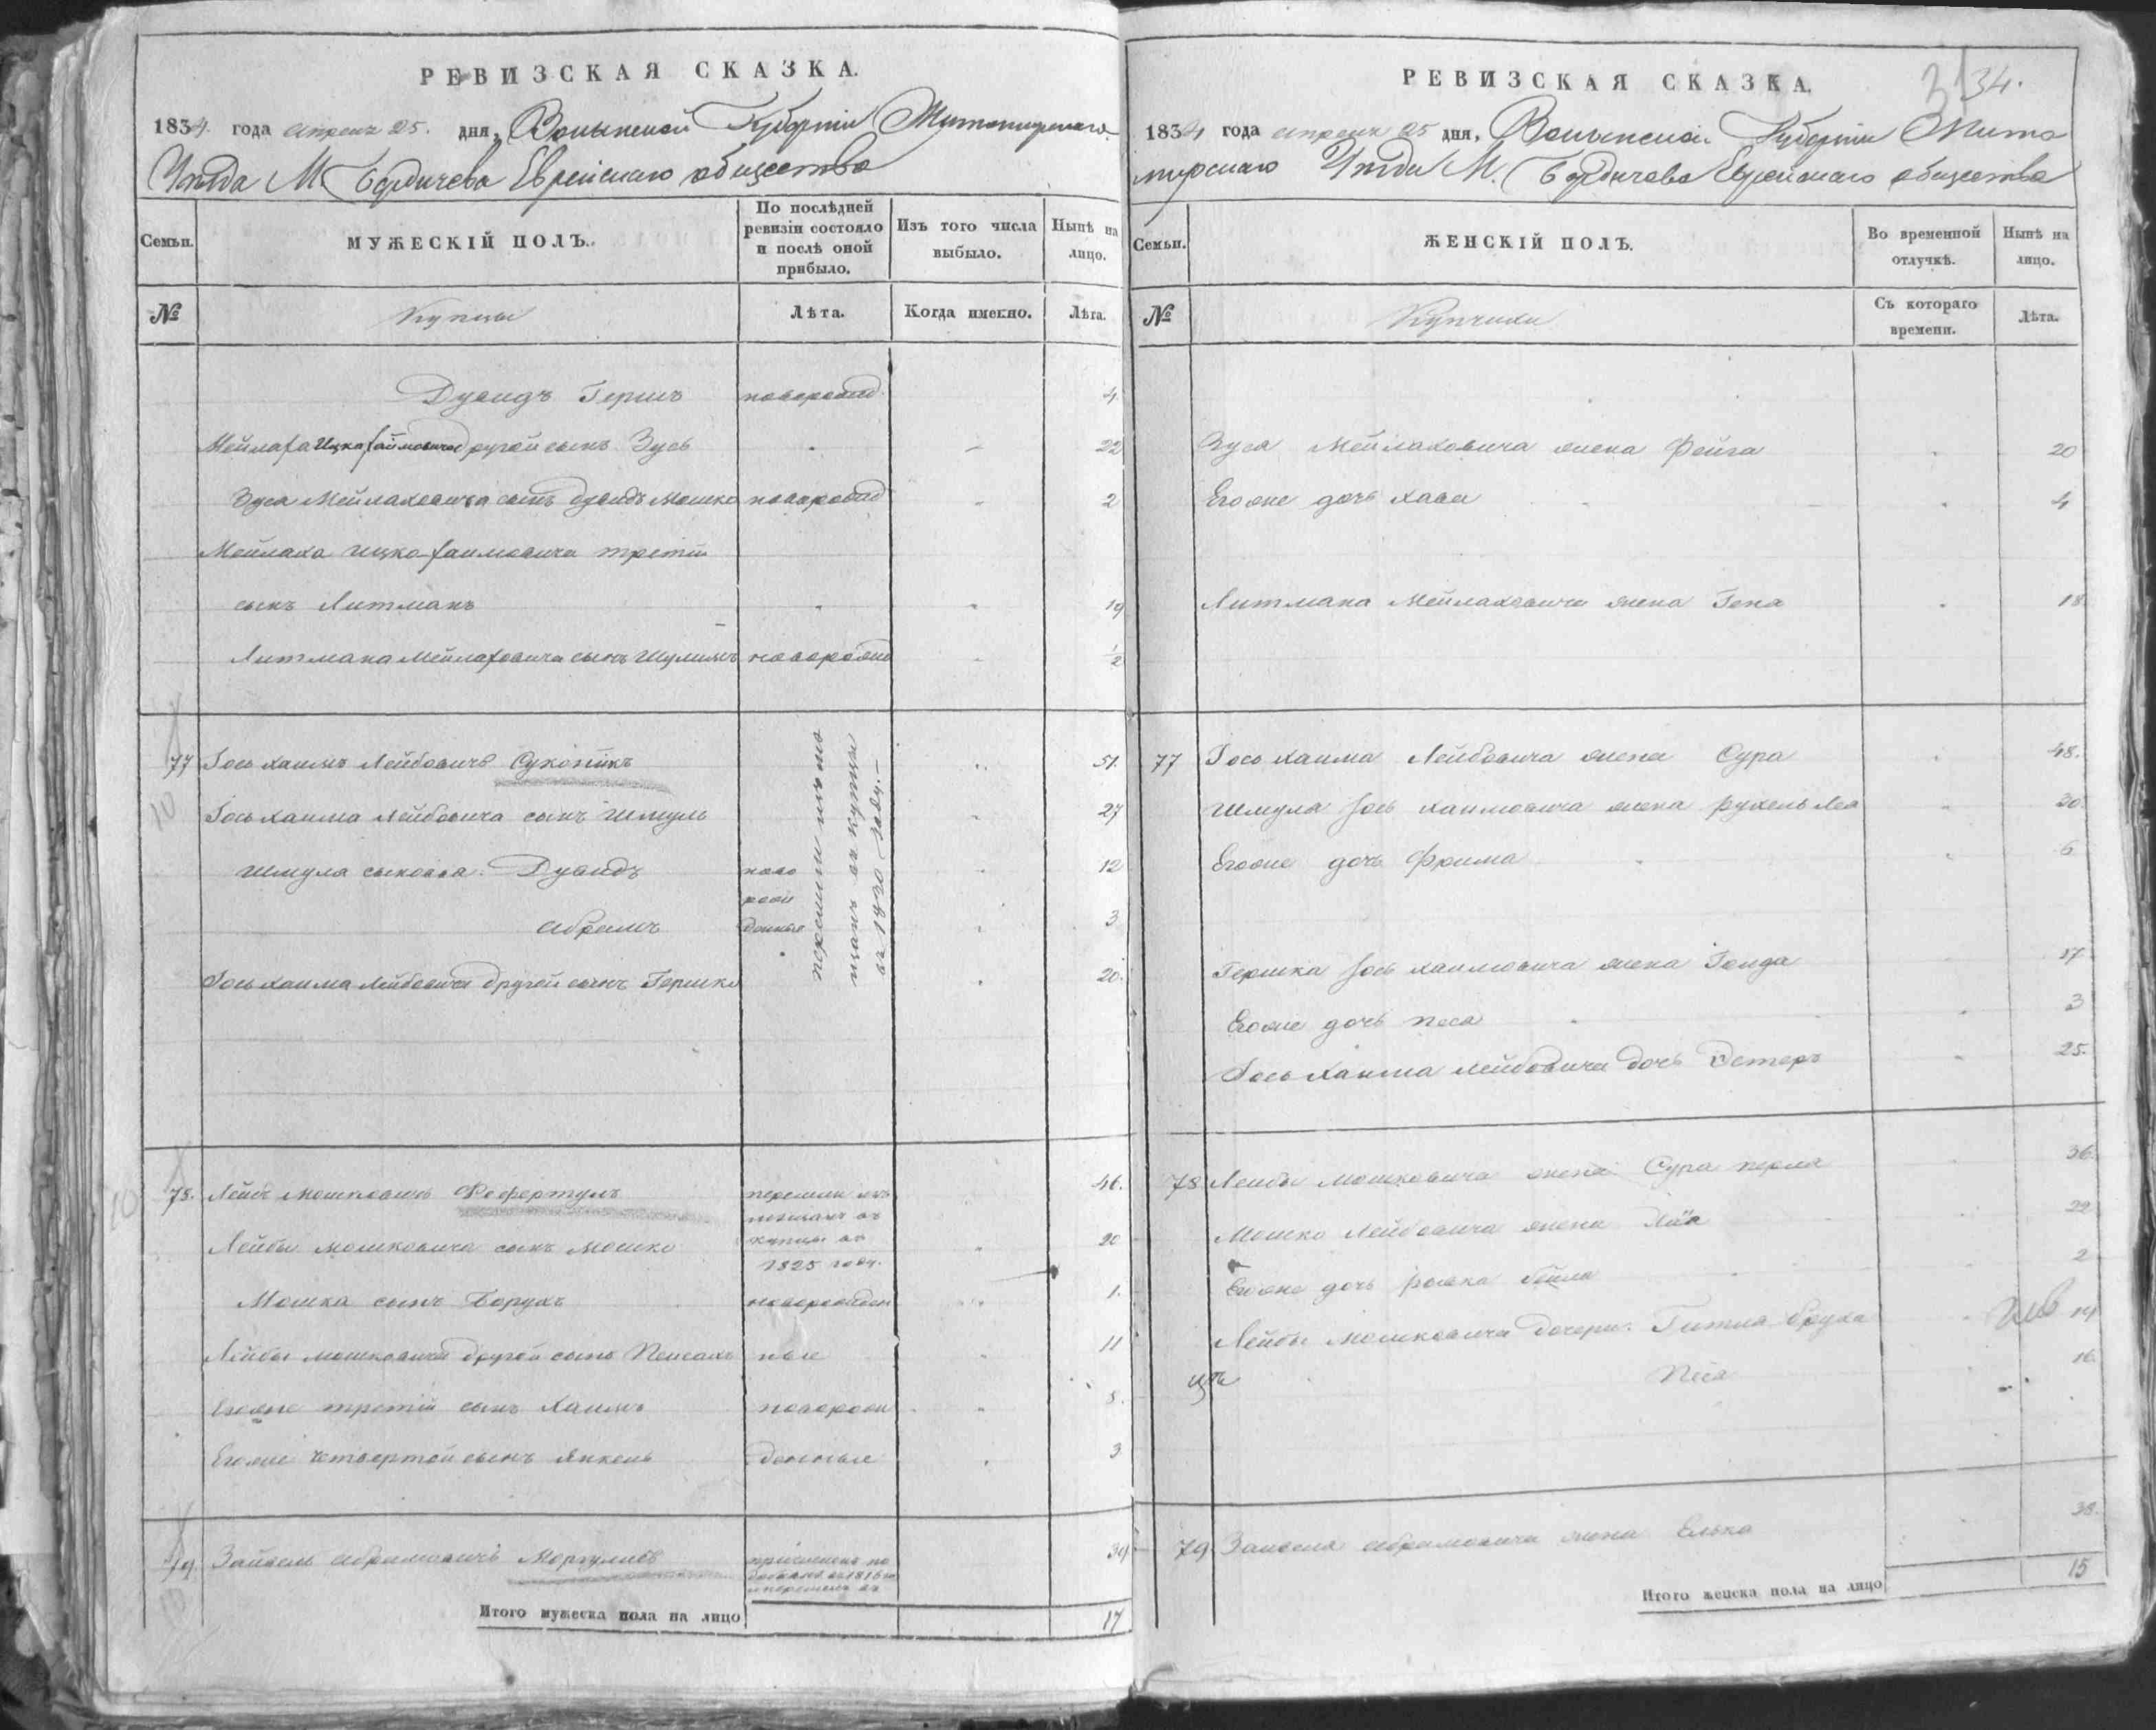 РЕВИЗСКАЯ СКАЗКА.
1834 года апреля 25. дня, Волынской Губернiи Житомирскаго
Уѣзда М. Бердичева Еврейскаго общества
Семьи.
МУЖЕСКІЙ ПОЛЪ.
По послѣдней ревизіи состояло и послѣ оной прибыло.
Изъ того числа выбыло.
Нынѣ на лицо.
№
Купцы
Лѣта.
Когда именно.
Лѣта.
Дувидъ Гершъ новорожд 4
Мейлаха Ицко Хаймовича другой сынъ Зусь 22
Зуся Мейлаховича сынъ Дувидъ Мошко новорожд 2
Мейлаха Ицко-Хаимовича третій
сынъ Литманъ 19
Литмана Мейлаховича сынъ Шулимъ новорожд ½
77 Іось Хаимъ Лейбовичъ Суконикъ 51.
Іось Хаима Лейбовича сынъ Шмуль 27
перешли изъ мѣщанъ въ купцы въ 1830 году.
Шмуля сыновья: Дувидъ ново 12
рож
Абрамъ денные 3
Іось Хаима Лейбовича другой сынъ Гершко 20.
78. Лейба Мошковичъ 46.
перешли изъ
мещанъ въ
купцы въ
1825 году.
Лейбы Мошковича сынъ Мошко 20
Мошка сынъ Борухъ новорожден 1.
Лейбы Мошковича другой сынъ Пейсахъ ные 11
Егоже третій сынъ Хаимъ новорож 8.
Егоже четвертой сынъ Янкель денные 3
79. Зайвель Абрамовичъ Моргулисъ 39
Итого мужеска пола на лицо 17
РЕВИЗСКАЯ СКАЗКА.
34.
1834 года апреля 25 дня, Волынской Губернiи Жито
мирскаго Уѣзда М. Бердичева Еврейскаго общества
Семьи.
ЖЕНСКІЙ ПОЛЪ.
Во временной отлучкѣ.
Нынѣ на лицо.
№
Купчихи
Съ котораго времени.
Лѣта.
Зуся Мейлаховича жена Фейга 20
Егоже дочь Хава 4
Литмана Мейлаховича жена Гена 18
77 Іось Хаима Лейбовича жена Сура 48.
Шмуля Іось Хаимовича жена Рухель Леа 30.
Егоже дочь Фрима 6
Гершка Іось Хаимовича жена Голда 17
Егоже дочь Песа 3
Іось Хаима Лейбовича дочь Эстеръ 25.
78 Лейбы Мошковича жена Сура Перля 36
Мошко Лейбовича жена Хая 22
Егоже дочь Ройза Бейла 2
Лейбы Мошковича дочери: Гитля Бруха 14
Песа 16.
79. Зайвеля Абрамовича жена Элька 38.
Итого женска пола на лицо 15